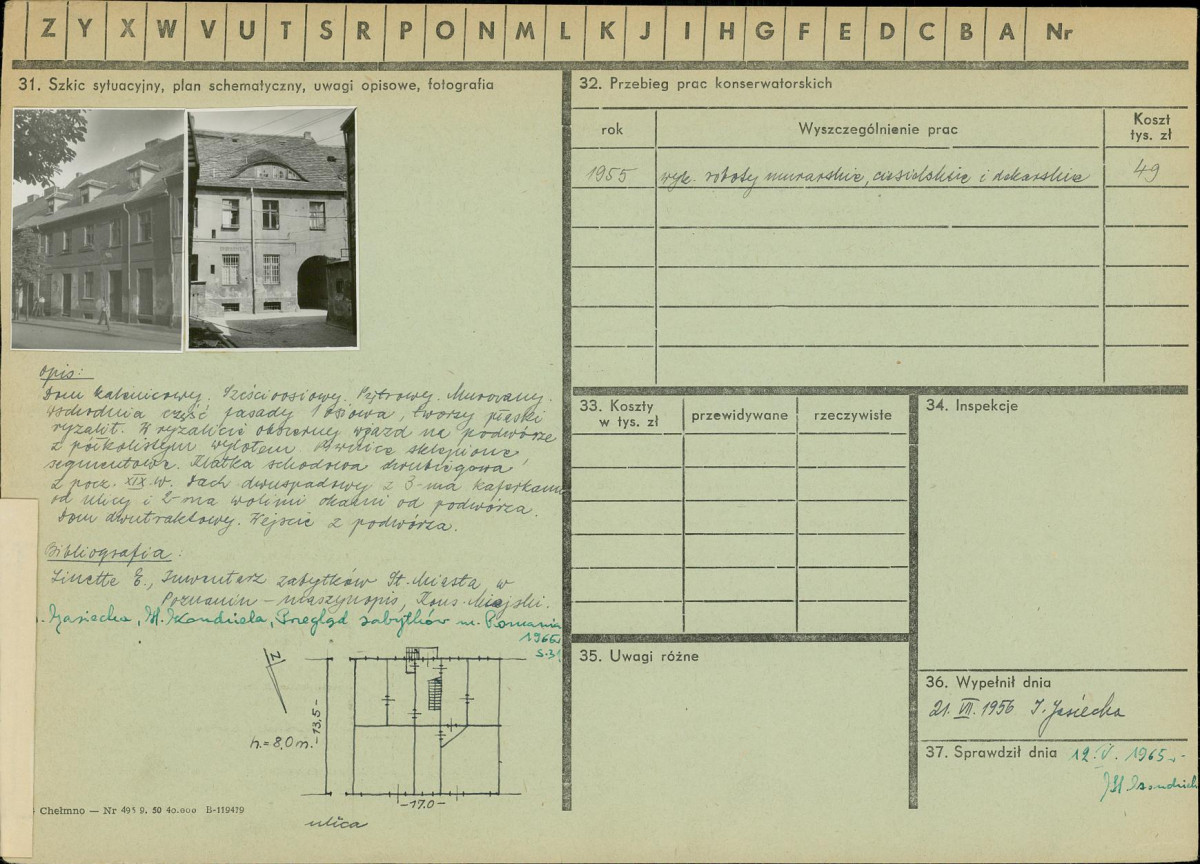 Z Y X W V U T S R P O N M L K J I H G F E D C B A Nr
31. Szkic sytuacyjny, plan schematyczny, uwagi opisowe, fotografia
opis:
Dom kalenicowy. Sześcioosiowy. Piętrowy. Murowany.
Wschodnia część fasady 1 osiowa, tworzy płaski
ryzalit. W ryzalicie obszerny wjazd na podwórze
z półkolistym wylotem. Piwnice sklepione
segmentowo. Klatka schodowa dwubiegowa
z pocz. XIX w. Dach dwuspadowy z 3-ma kaferkami
od ulicy i 2-ma wolimi okami od podwórza.
Dom dwutraktowy. Wejście z podwórza.
Bibliografia:
Linette E., Inwentarz zabytków St. Miasta w
Poznaniu – maszynopis, Kons. Miejski.
Jasiecka, H. Kondziela, Przegląd zabytków m. Poznania
1965
s. 31
N
h. = 8,0 m.
-13,5-
-17.0-
ulica
Chełmno — Nr 495 9. 50 40.000 B-119419
32. Przebieg prac konserwatorskich
rok Wyszczególnienie prac Koszt tys. zł
1955 wyk. roboty murarskie, ciesielskie i dekarskie 49
33. Koszty w tys. zł przewidywane rzeczywiste
34. Inspekcje
35. Uwagi różne
36. Wypełnił dnia
21. VII. 1956 I. Jasiecka
37. Sprawdził dnia 12. V. 1965